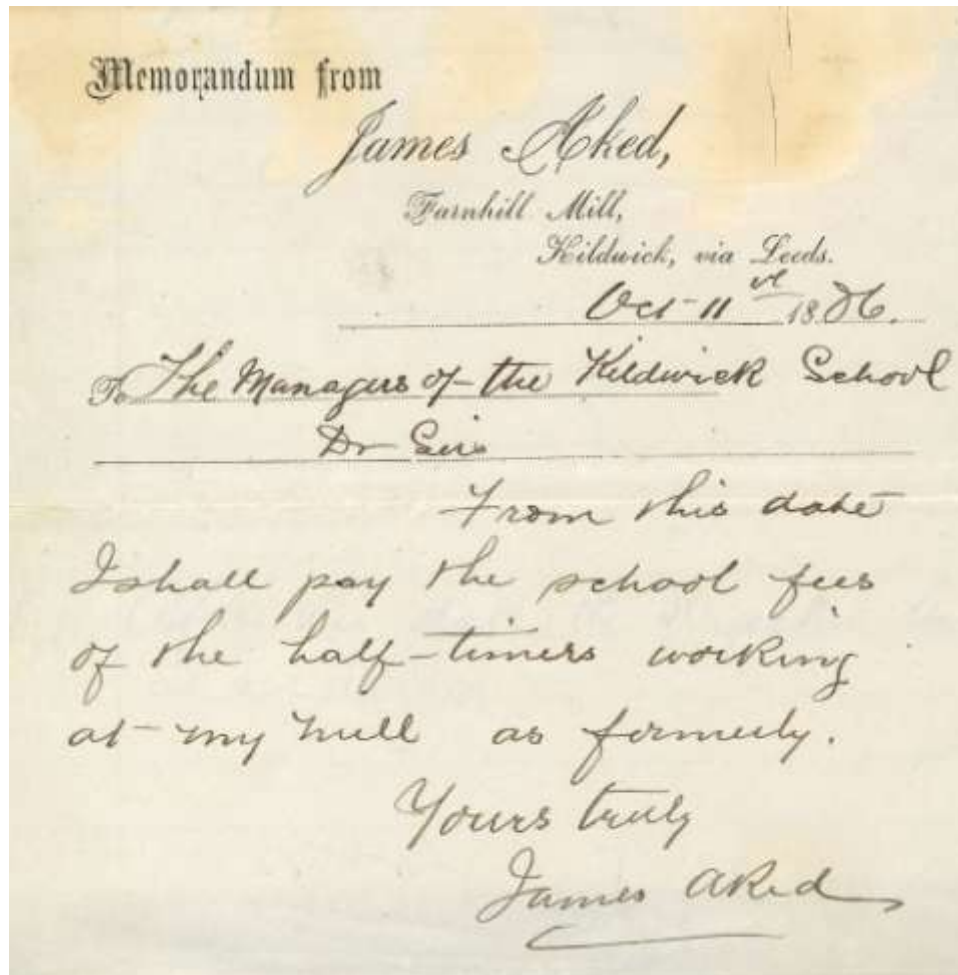 Memorandum from
James Aked,
Farnhill Mill,
Kildwick, via Leeds.
Oct 11th 1886.
To The Managers of the Kildwick School
Dr Sirs
From this date
I shall pay the school fees
of the half-timers working
at my mill as formerly.
Yours truly
James Aked